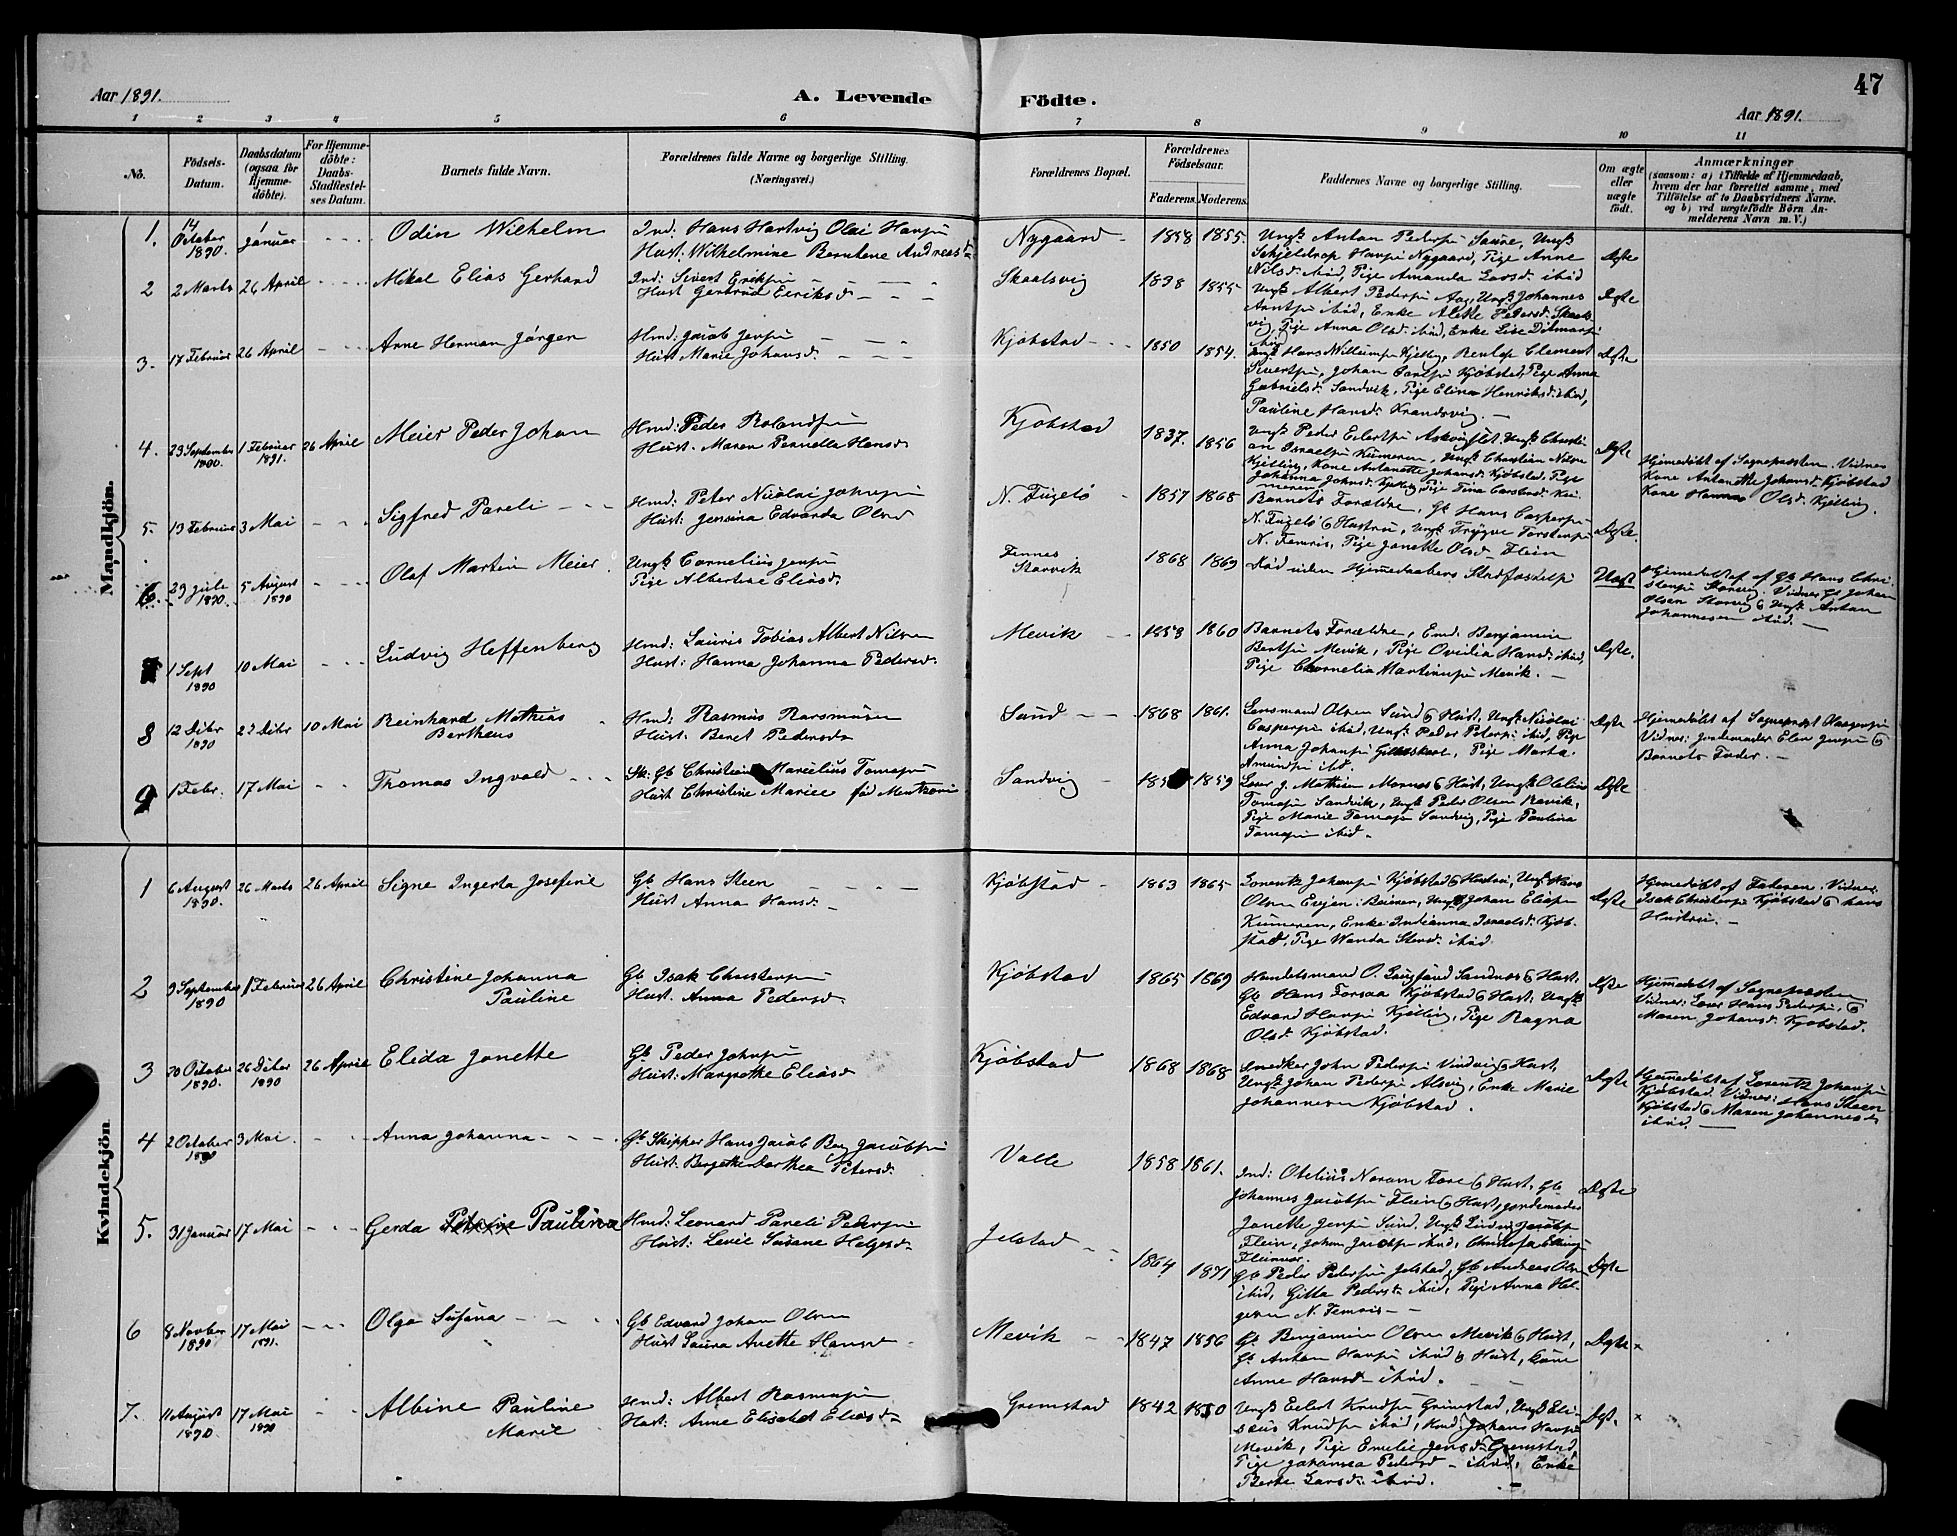 47
Aar 1891.
A. Levende
Födte.
Aar 1891.
1 2 3 4 5 6 7 8 9 10 11
No.
Födsels-Datum.
Daabsdatum (ogsaa for Hjemmedöbte).
For Hjemmedöbte: Daabs-Stadfæstelses Datum.
Barnets fulde Navn.
Forældrenes fulde Navne og borgerlige Stilling.
(Næringsvei.)
Forældrenes Bopæl.
Forældrenes Födselsaar.
Faderens. Moderens.
Faddernes Navne og borgerlige Stilling.
Om ægte eller uægte födt.
Anmærkninger
(saasom: a) i Tilfælde af Hjemmedaab,
hvem der har forrettet samme, med
Tilföielse af to Daabsvidners Navne.
og b) ved uægtefödte Börn An-
melderens Navn m. V.)
Mandkjön.
1. 14 October 1890. 1 Januar Odin Wilhelm
Ind. Hans Hartvig Olai Hansen
Hust: Wilhelmine Berntine Andreasd
Nygaard 1858 1855.
Ungk Anton Pedersen Saure, Ungk
Schjeldrop Hansen Nygaard, Pige Anne
Nilsd. ibid, Pige Amanda Larsd. ibid
Ægte
2 2 Marts 26 April Mikal Elias Gerhard
Ind: Sivert Eriksen
Hust Gertrud Eeriksd
Skaalsvig 1838 1855
Ungk Albert Pedersen Aag, Ungk Johannes
Arntsen ibid, Enke Alette Pedersd. Skaals
vig, Pige Anna Olsd. ibid, Enke Lise Ditmarsen
ibid
Ægte
3. 17 Februar 26 April Arne Herman Jørgen
Hmd: Jacob Jensen
Hust Marie Johansd.
Kjøbstad 1850 1854.
Ungk Hans Willumsen Kjelling, Clement
Sivertsen, Johan Carlsen Kjøbstad, Pige Anna
Gabrielsd. Sandvik, Pige Elina Henriksd. ibid,
Pauline Hansd.
Ægte
4. 23 September 1890 1 Februar 1891. 26 April Meier Peder Johan
Hmd: Peder Rolandsen
Hust. Maren Pernella Hansd
Kjøbstad 1837. 1856
Ungk Peder Eilertsen, Ungk Christi-
an Israelsen, Ungk Christian Nilsen
Kjelling, Kone Antonette Johansd. Kjøbstad, Pige
Johanna Johansd. Kjelling, Pige Tina
Ægte
Hjemmedøbt af Sognepræsten. Vidner
Kone Antonette Johansd. Kjøbstad
Kone Hanna Olsd. Kjelling.
5. 19 Februar 3 Mai Sigfred Pareli
Hmd: Peter Nicolai Johnsen
Hust: Jensina Edvarda Olsd
N. Fugelø 1857 1868
Barnets Forældre, Gb Hans Caspersen
N. Fugelø & Hustru, Ungk Trygve Torstensen
N. Femris, Pige Janette Olsd Flein
Ægte.
6. 29 Juli 1890. 5 August 1890 Olaf Martin Meier
Ungk Cornelius Jensen
Pige Albertine Eliasd.
Finnes
Storvik 1868 1869
Død uden Hjemmedaabens Stadfæstelse
Uægt
Hjemmedøbt af Gb Hans Chri-
stensen Storvig. Vidner Gb Johan
Olsen Storvig & Ungk Anton
Johannesen ibid.
7 1 Sept 1890 10 Mai Ludvig Heffenberg
Hmd: Lauris Tobias Albert Nilsen
Hust: Hanna Johanna Pedersd.
Mevik 1858 1860
Barnets Forældre, Em. Benjamin
Berthsen Mevik, Pige Ovidia Hansd. ibid,
Pige Cornelia Martinsen Mevik.
Ægte.
8 12 Dcbr 1890 27 Dcbr 10 Mai Reinhard Mathias
Bertheus
Hmd: Rasmus Rasmusen
Hust: Beret Pedersd.
Sund 1868 1861.
Lensmand Olsen Sund & Hust, Ungk Nicolai
Caspersen ibid, Ungk Peder Petersen ibid, Pige
Anna Johansen Gildeskaal, Pige Marta
Amundsen ibd.
Ægte
Hjemmedøbt af Sognepræst
Vidner: Jordemoder Elen Jensen &
Barnets Fader.
9 1 Febr. 17 Mai Thomas Ingvald
Sk: Gb Christian Marelius Tomassen
Hust Christine Marie fød Mentzoni
Sandvig 185 1859
Lærer J. Mathisen Mornes & Hust, Ungk Olelius
Tomasen Sandvik, Ungk Peder Olsen Ravik,
Pige Marie Tomasen Sandvig, Pige Paulina
Tomasen ibid.
Ægte
Kvindekjön
1 6 August 1890. 26 Marts 26 April Signe Ingerta Josefine
Gb Hans Steen
Hust Anna Hansd.
Kjøbstad 1863 1865
Lorentz Johansen Kjøbstad & Hustru, Ungk Hans
Olsen Evjen: Beiaren, Ungk Johan Eliasen
Kunneren, Enke Indianna Israelsd. Kjøb-
stad, Pige Wanda Stensd. ibid.
Ægte
Hjemmedøbt af Faderen. Vidner:
Isak Christensen Kjøbstad & hans
Hustru.
2 9 September 1890 1 Februar 26 April Christine Johanna
Pauline
Gb Isak Christensen
Hust. Anna Pedersd.
Kjøbstad 1865 1869
Handelsmand O. Langsand Sandnes & Hust,
Gb Hans Forsaa Kjøbstad & Hust, Ungk
Edvard Hansen Kjelling, Pige Ragna
Olsd. Kjøbstad.
Ægte
Hjemmedøbt af Sognepræsten
Vidner: Lærer Hans Pedersen, &
Maren Johansd. Kjøbstad.
3 20 October 1890. 26 Dcbr 1890 26 April Elida Janette
Gb Peder Johnsen
Hust: Margrethe Eliasd
Kjøbstad 1868 1868
Snedker John Pedersen Vindvig & Hust,
Ungk Johan Pedersen Alsvig, Enke Marie
Johannesen Kjøbstad.
Ægte
Hjemmedøbt af Lorentz Johansen
Kjøbstad. Vidner: Hans Steen
Kjøbstad & Maren Johannesd
ibid.
4 2 October 1890 3 Mai. Anna Johanna
Gb Skipper Hans Jacob Berg Jacobsen
Hust: Bergethe Dorthea Petersd.
Valle 1858 1861.
Ind: Otelius Noram Fore & Hust, Gb
Johannes Jacobsen Flein & Hust, Jordemoder
Janette Jensen Sund, Ungk Ludvig Jacobsen
Flein, Johan Jacobsen ibid, Christofa Elling
Fleinvær.
Ægte
5. 31 Januar 17 Mai Gerda Petrine Paulina
Hmd: Leonard Pareli Pedersen
Hust: Levie Susane Helgesd.
Jelstad 1864 1871
Gb Peder Pedersen Jelstad, Gb Andreas Olsen
ibid, Gitta Pedersd. ibid, Pige Anna Hel-
gesen N. Femris
Ægte
6 8 Novber 1890 17 Mai 1891. Olga Susana
Gb Edvard Johan Olsen
Hust Laura Anette Hansd
Mevik 1847 1856
Gb. Benjamin Olsen Mevik & Hust,
Gb. Anton Hansen ibid & Hust, Kone
Anne Hansd. ibid.
Ægte
7. 11 August 1890 17 Mai 1890 Albine Pauline
Marie
Hmd: Albert Rasmusen
Hust: Anne Elisabet Eliasd.
Grimstad 1842 1850
Ungk Eilert Knudsen Grimstad, Ungk Eli-
seus Knudsen ibid, Hmd. Johans Hansen
Mevik, Pige Emelie Jensd. Grimstad,
Pige Johanna Pedersd. ibid, Enke
Berte Larsd. ibid.
Ægt.